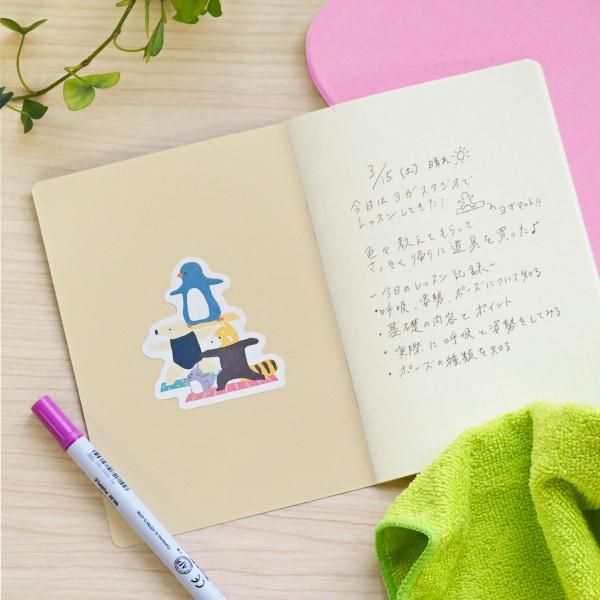 3/15 (土) 晴れ
今日はヨガスタジオで
レッスンしてきた！
のヨガマット!!
色々教えてもらって
さっそく帰りに道具を買った♪
ー今日のレッスン記録ー
・呼吸、姿勢、ポーズについて知る
・基礎の内容とポイント
・実際に呼吸と姿勢をしてみる
・ポーズの種類を知る
NO.82 PURPLE
CE